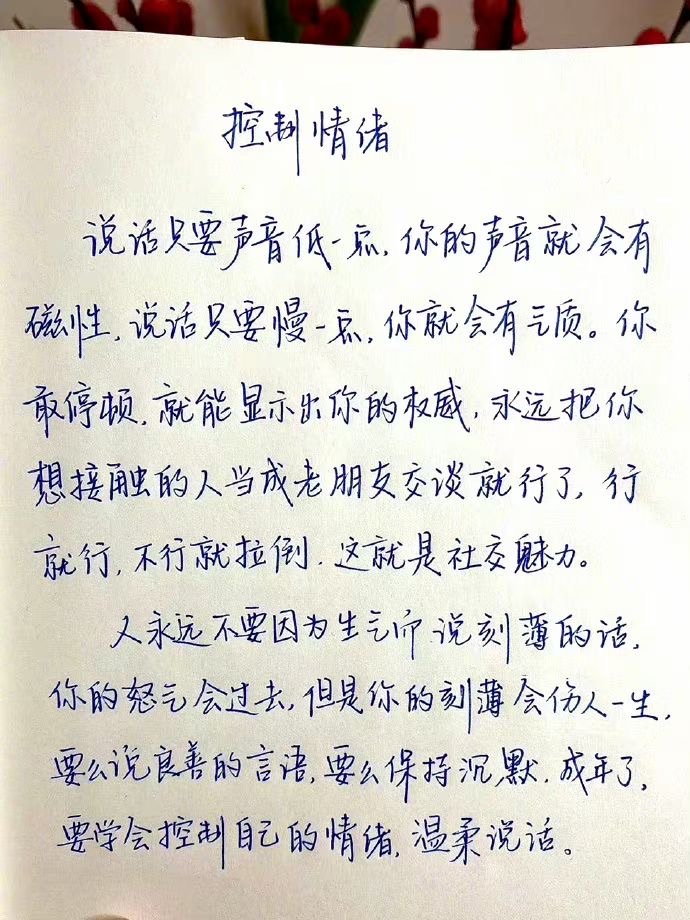 控制情绪
说话只要声音低一点,你的声音就会有
磁性,说话只要慢一点,你就会有气质。你
敢停顿,就能显示出你的权威,永远把你
想接触的人当成老朋友交谈就行了,行
就行,不行就拉倒.这就是社交魅力。
人永远不要因为生气而说刻薄的话,
你的怒气会过去,但是你的刻薄会伤人一生,
要么说良善的言语,要么保持沉默.成年了,
要学会控制自己的情绪,温柔说话。